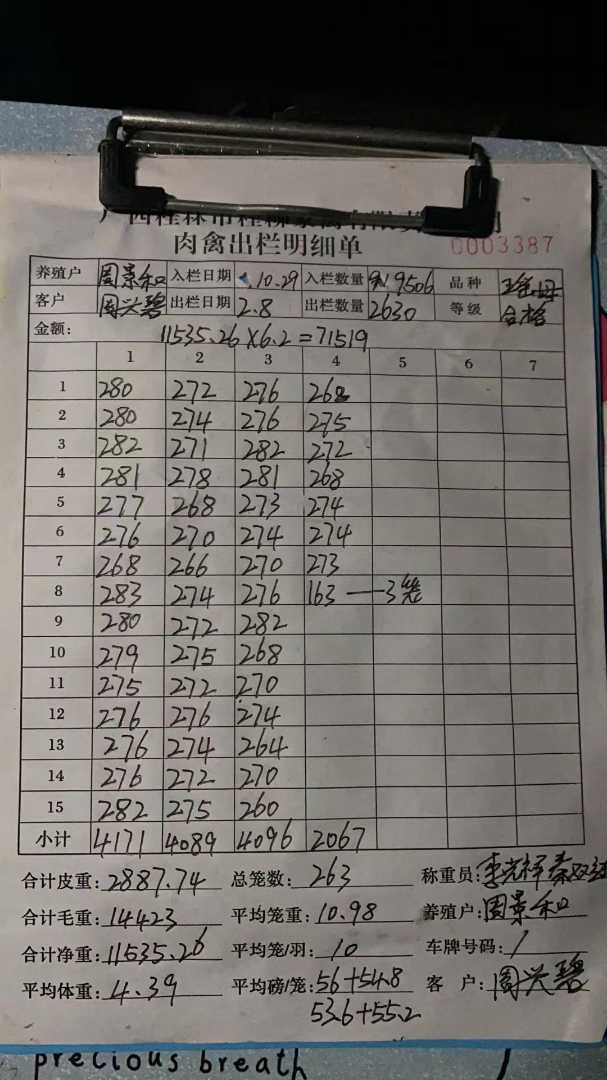 肉禽出栏明细单 0003387
养殖户 周景和 入栏日期 10.29 入栏数量 9506 品种
客户 周兴碧 出栏日期 2.8 出栏数量 2630 等级 合格
金额: 11535.26×6.2=71519
1 2 3 4 5 6 7
1 280 272 276 268
2 280 274 276 275
3 282 271 282 272
4 281 278 281 268
5 277 268 273 274
6 276 270 274 274
7 268 266 270 273
8 283 274 276 163 — 3笼
9 280 272 282
10 279 275 268
11 275 272 270
12 276 276 274
13 276 274 264
14 276 272 270
15 282 275 260
小计 4171 4089 4096 2067
合计皮重: 2887.74 总笼数: 263 称重员:
合计毛重: 14423 平均笼重: 10.98 养殖户: 周景和
合计净重: 11535.26 平均笼/羽: 10 车牌号码: /
平均体重: 4.39 平均磅/笼: 56+54.8 客户: 周兴碧
53.6+55.2
precious breath